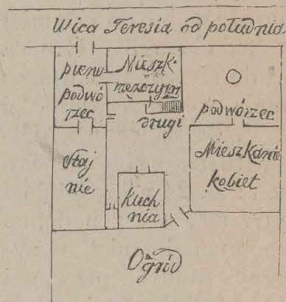 Ulica Teresia od południa
pierw
podwó
rzec
Mieszk.
mężczyzn
drugi
podwórzec
Staj
nie
Mieszkanie
kobiet
Kuch
nia
Ogród